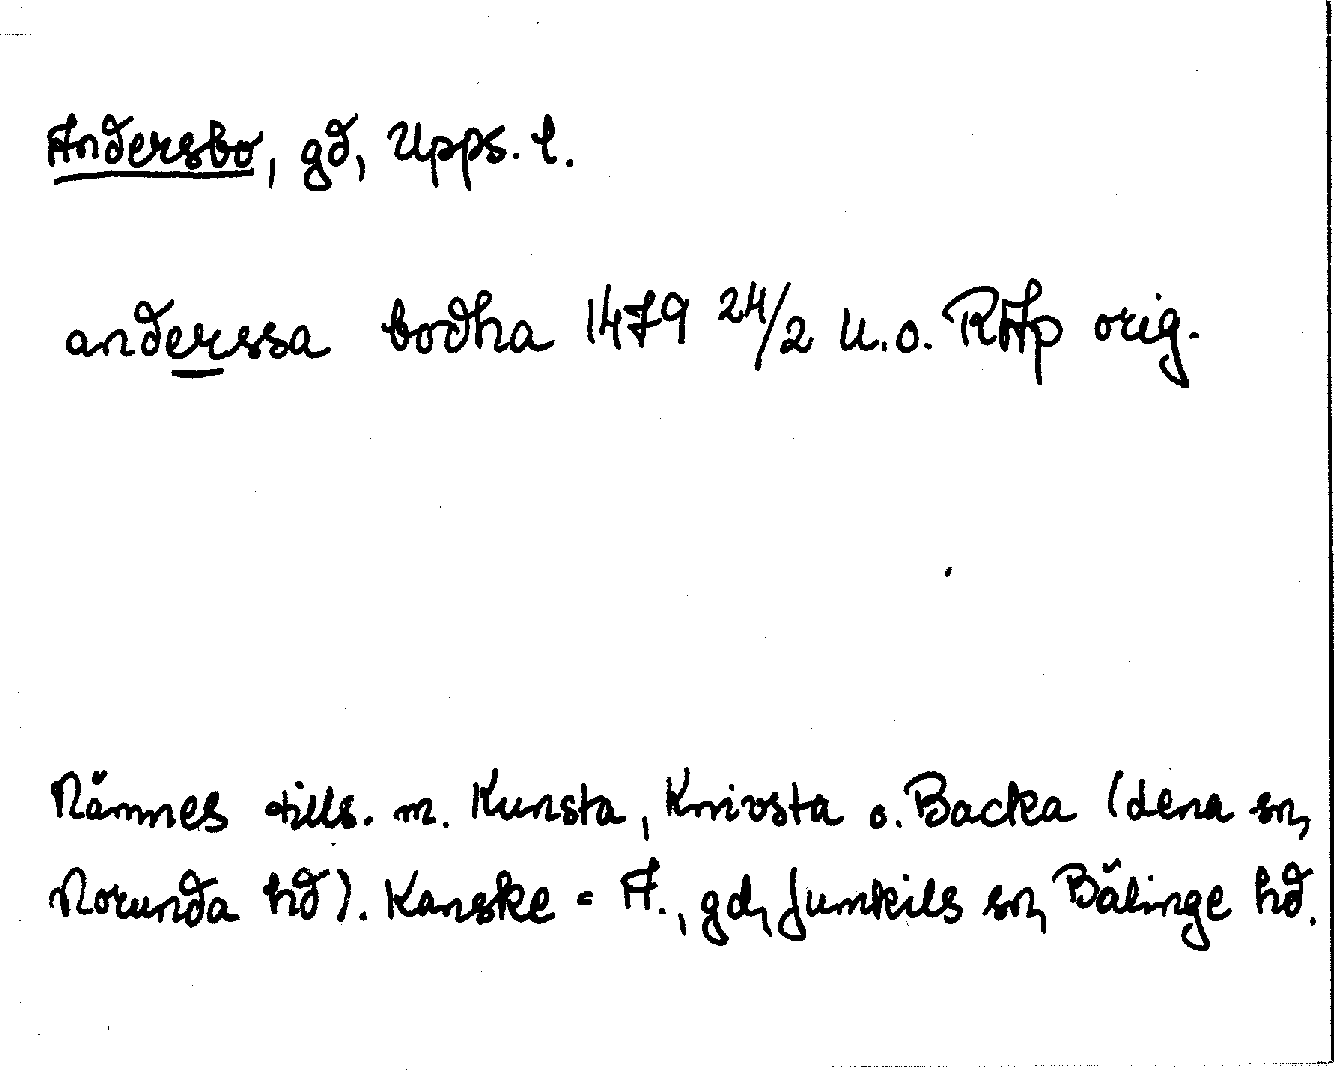 Andersbo, gd, Upps. l.
anderssa bodha 1479 24/2 u.o. RAp orig.
Nämnes tills. m. Kunsta, Knivsta o. Backa (dena sn,
Norunda hd). Kanske = A., gd, Jumkils sn, Bälinge hd.